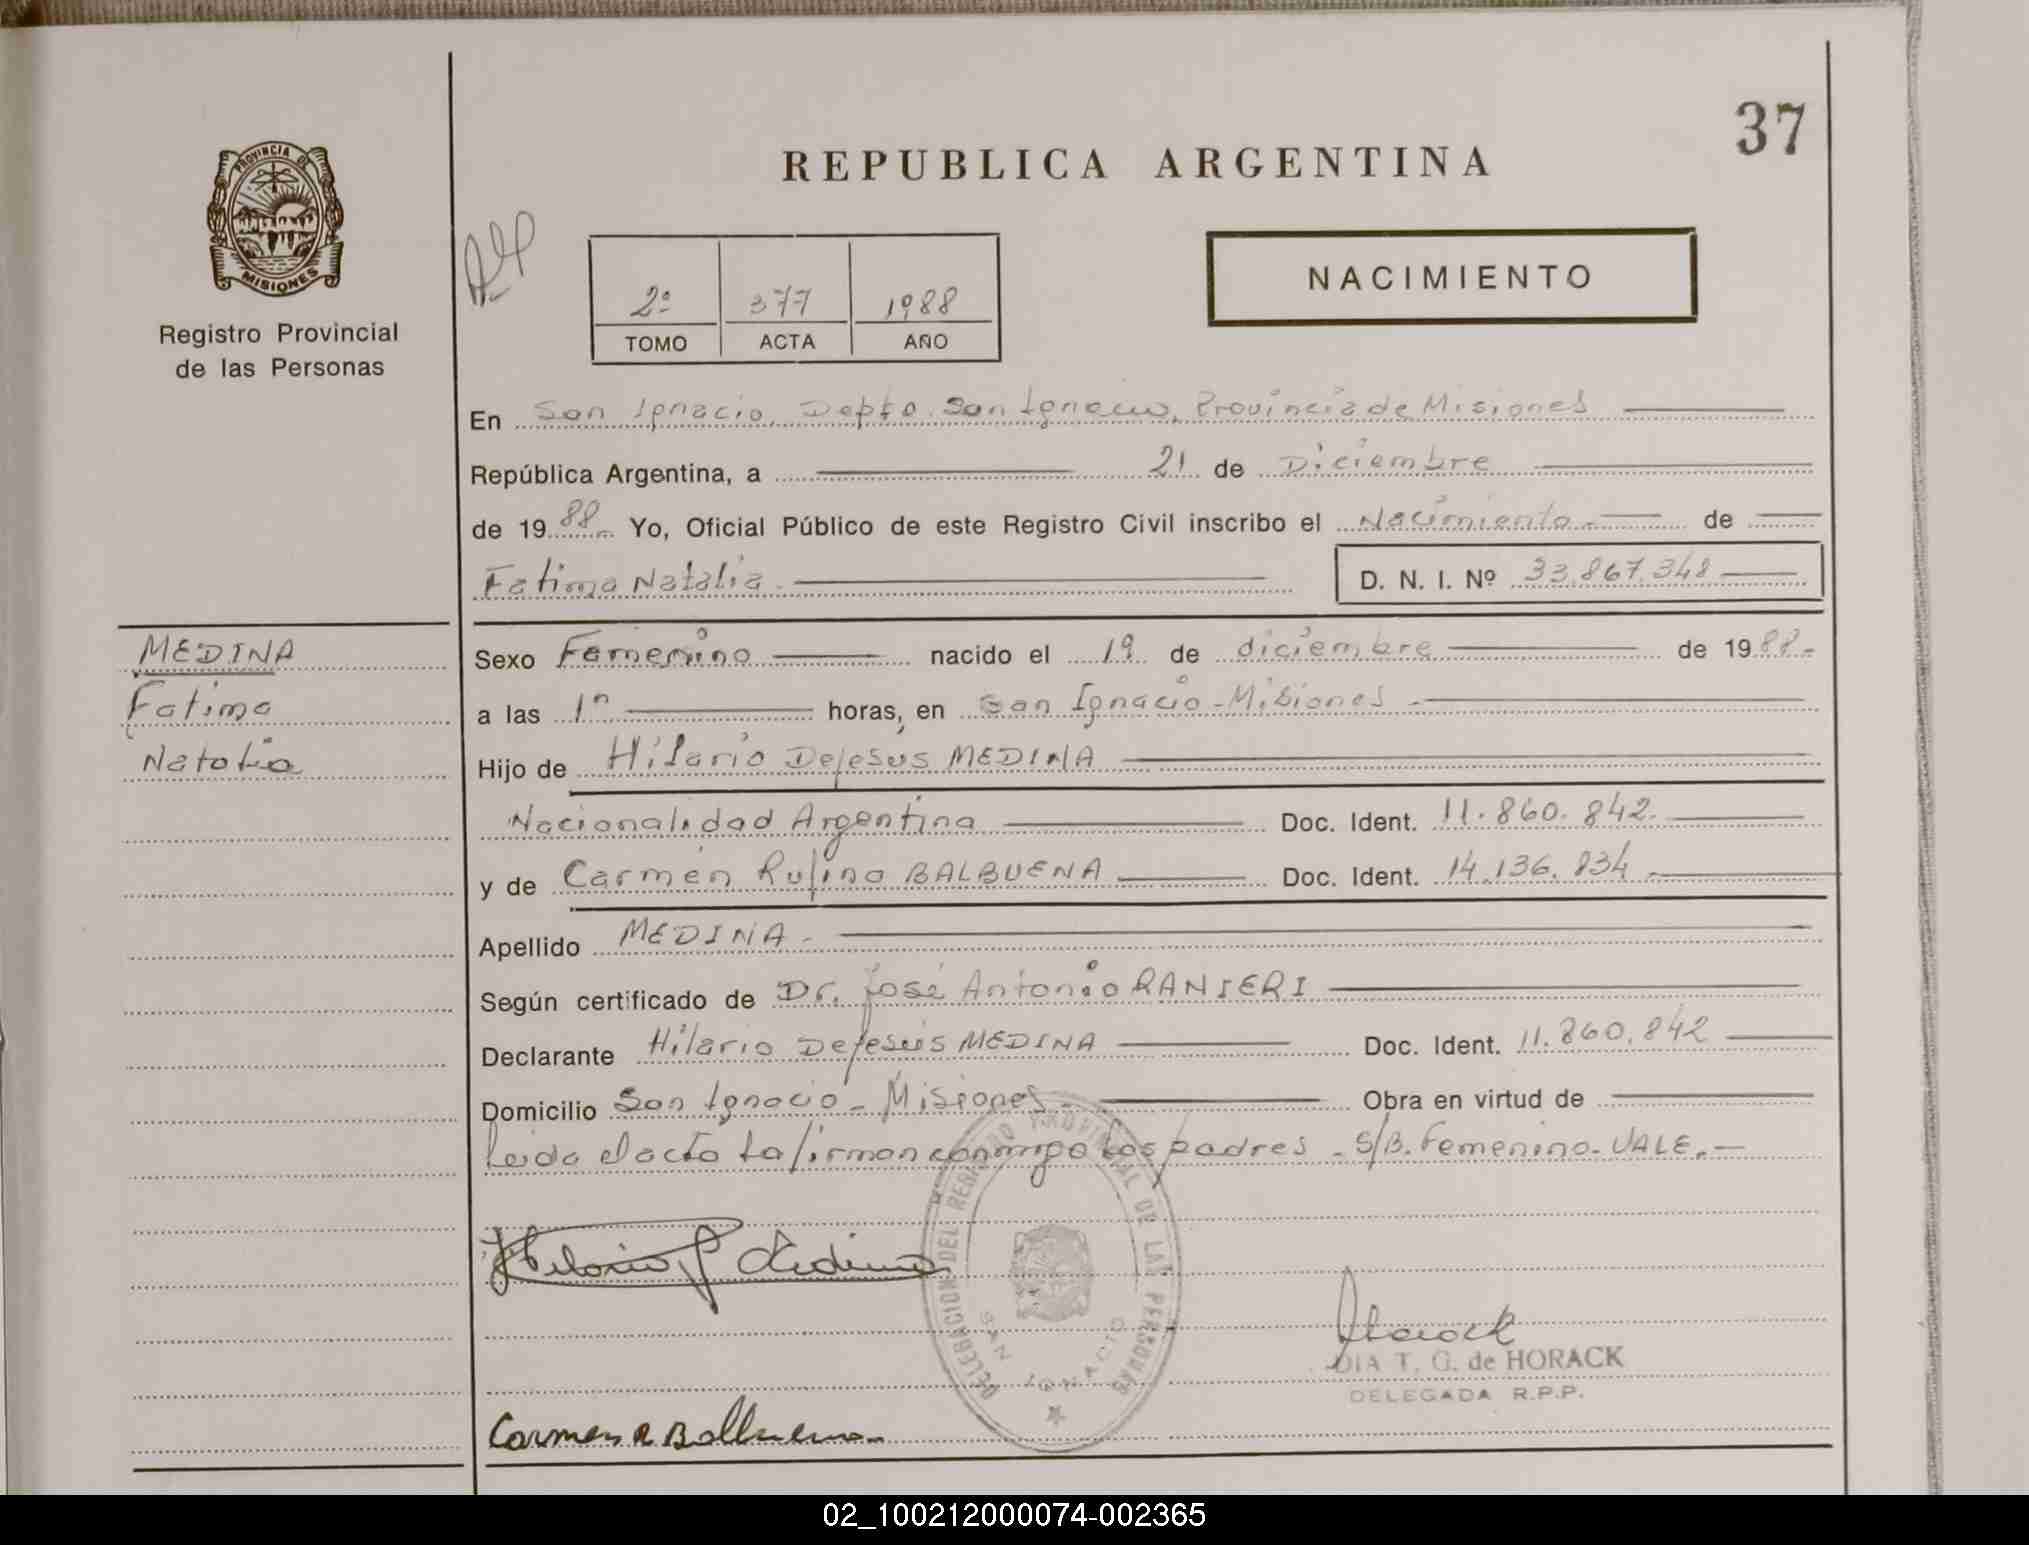 37
PROVINCIA DE
MISIONES
Registro Provincial
de las Personas
REPUBLICA ARGENTINA
NACIMIENTO
2º 377 1988
TOMO ACTA AÑO
En San Ignacio, Depto. San Ignacio, Provincia de Misiones
República Argentina, a 21 de Diciembre
de 1988.- Yo, Oficial Público de este Registro Civil inscribo el Nacimiento.- de
Fatima Natalia. D. N. I. Nº 33.867.348
MEDINA
Fatima
Natalia
Sexo Femenino nacido el 19 de diciembre de 1988.-
a las 1 horas, en San Ignacio - Misiones.
Hijo de Hilario Dejesús MEDINA
Nacionalidad Argentina Doc. Ident. 11.860.842.
y de Carmen Rufina BALBUENA Doc. Ident. 14.136.834.
Apellido MEDINA.
Según certificado de Dr. José Antonio RANIERI
Declarante Hilario Dejesús MEDINA Doc. Ident. 11.860.842
Domicilio San Ignacio - Misiones Obra en virtud de
Leida el acta la firman conmigo los padres - S/B. Femenino. VALE.-
DELEGACION DEL REGISTRO PROVINCIAL DE LAS PERSONAS
SAN IGNACIO
Horack
DIA T. G. de HORACK
DELEGADA R.P.P.
Carmen R Balbuena
02_100212000074-002365